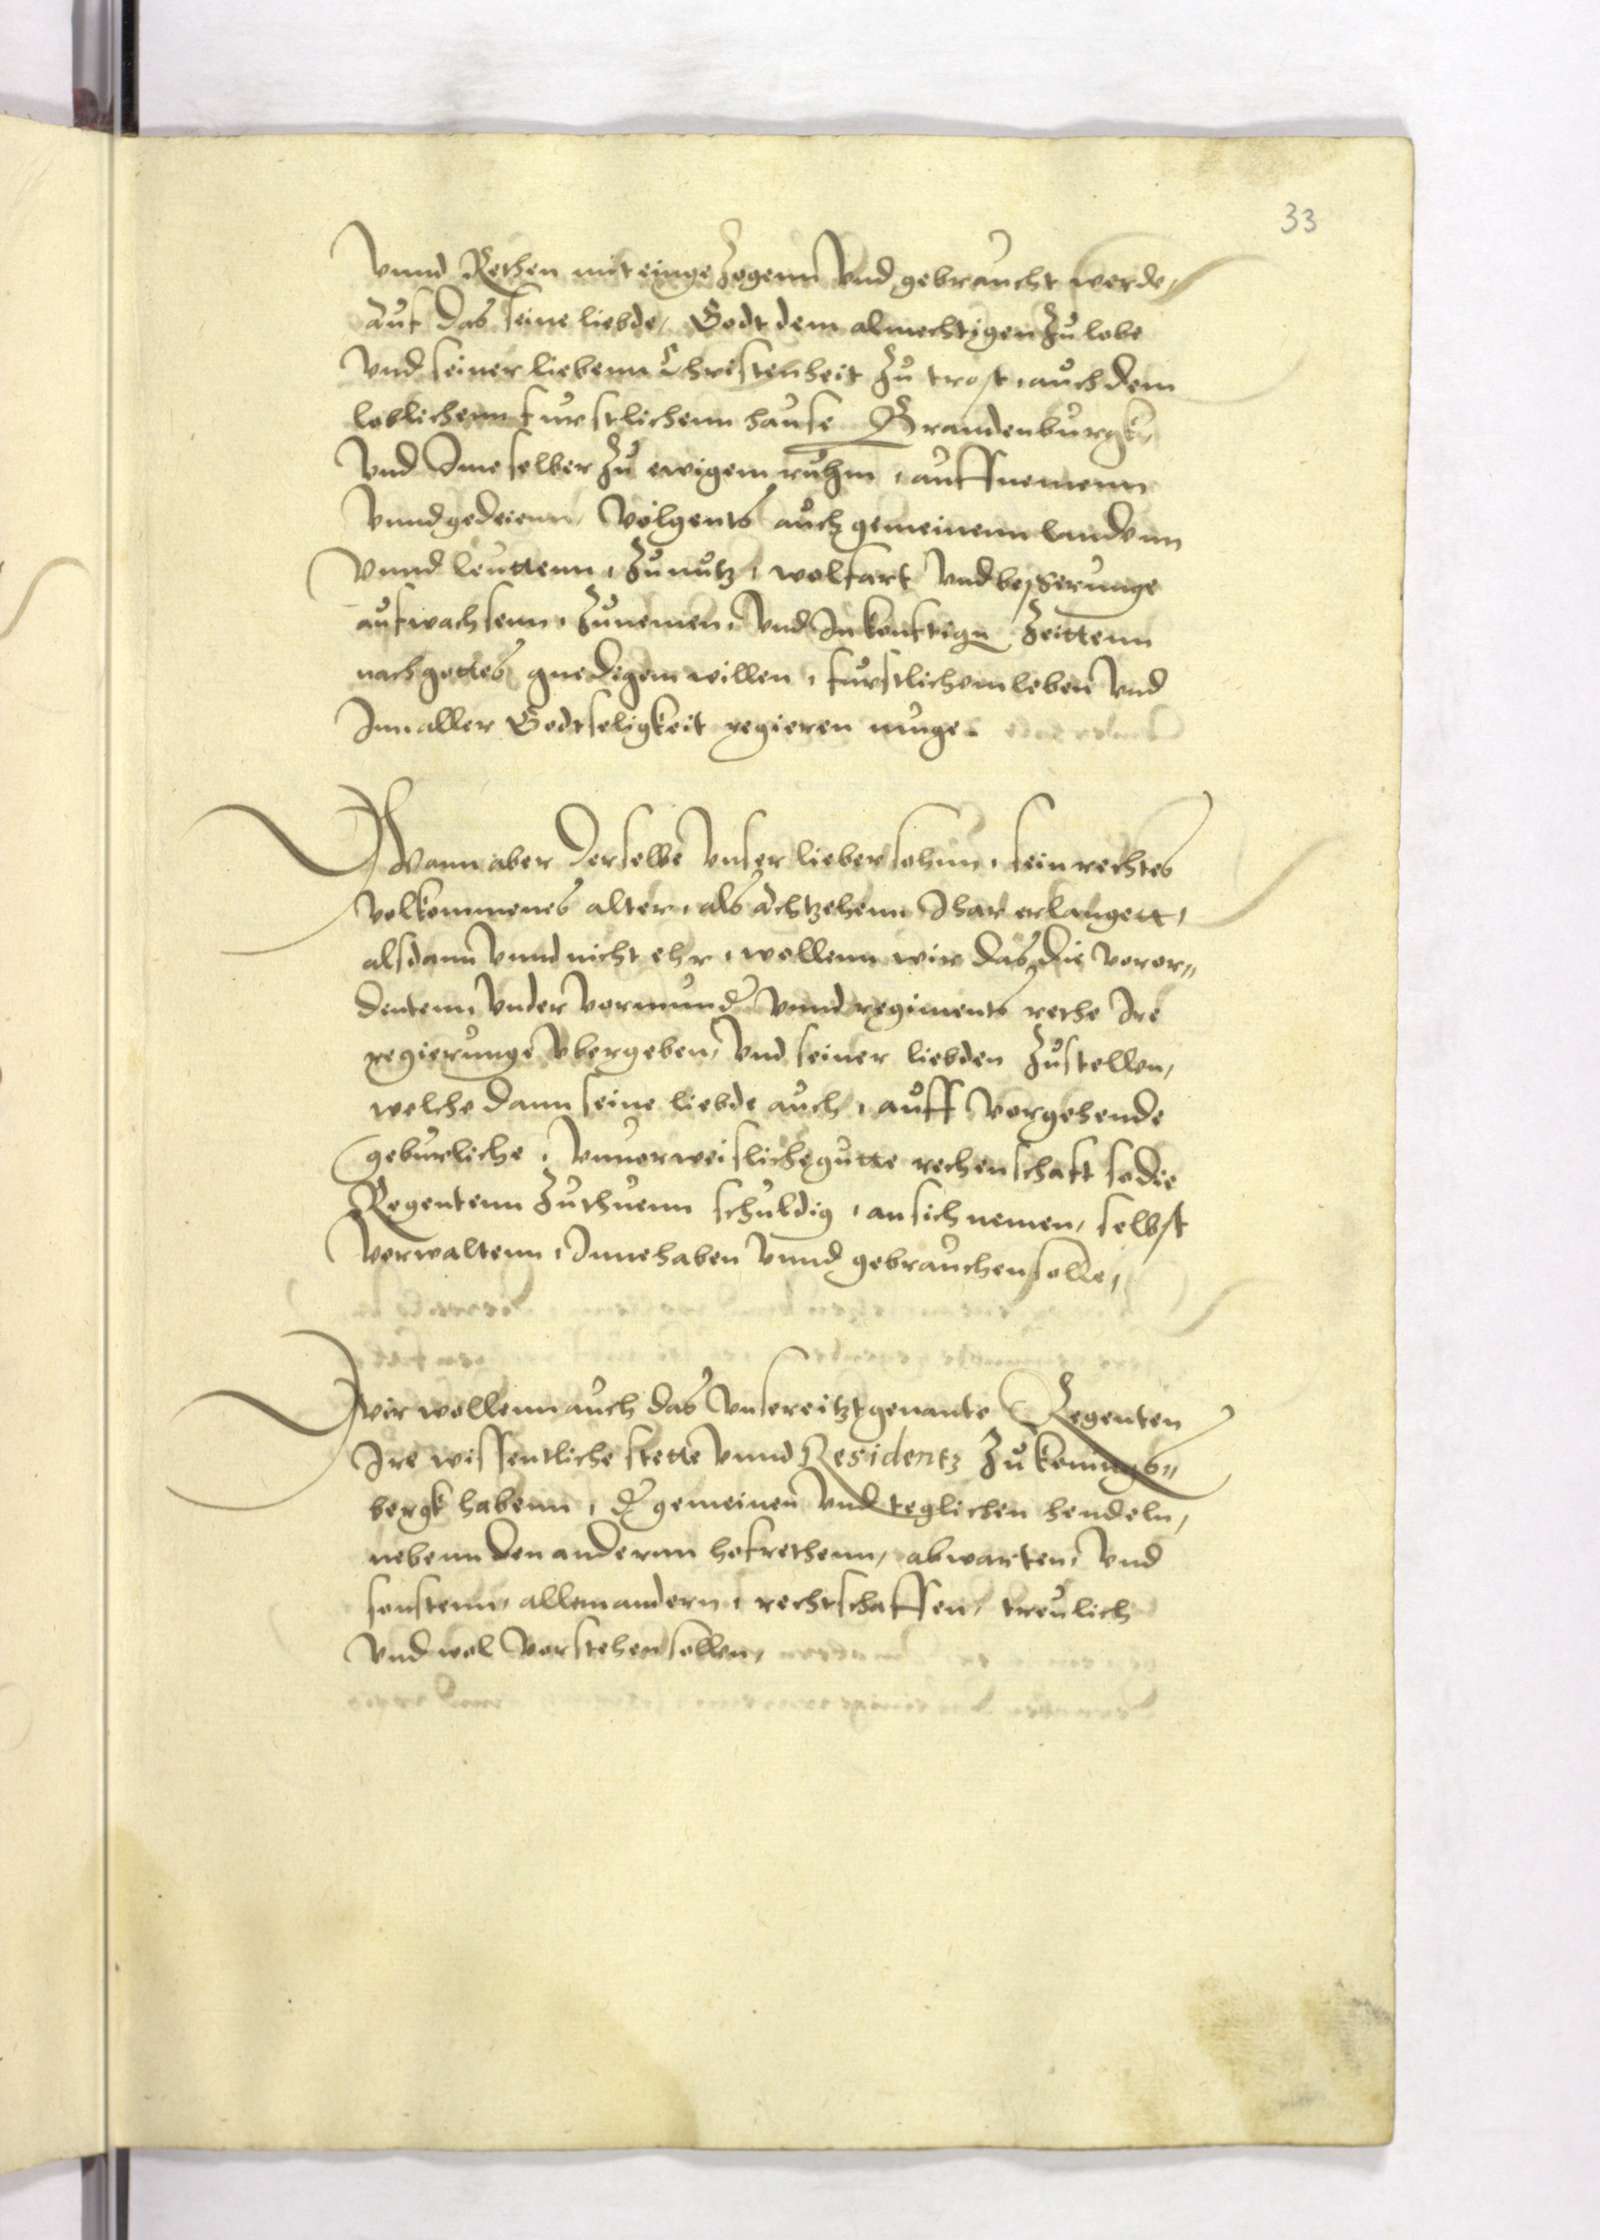 33
Vnnd Rethen mit eingezogenn vnd gebraucht werde,
auf das seine liebde, Godt dem almechtigen zu lobe
vnd seiner liebenn Christenheit zu trost, auch dem
loblichenn furstlichenn hause Brandenburgk,
vnd Ime selber zu ewigem ruhm, auffnemenn
vnnd gedeienn, volgents auch gemeinenn landenn
vnnd leuttenn, zu nutz, wolfart vnd besserunge
aufwachsenn, zunemen, vnd In konftign zeittenn
nach gottes gnedigem willen, furstlichem leben vnd
Inn aller Godtseligkeit regieren muge.
Wann aber derselbe vnser lieber sohnn, sein rechtes
volkommenes alter, als achtzehenn Jhar erlangett,
alsdann vnnd nicht ehr, wollenn wir das die veror¬
dentenn vnder vormunder vnnd regiments rethe Ire
regierunge vbergeben, vnd seiner liebden zustellen,
welche dann seine liebde auch, auff vorgehende
geburliche, vnuorweisliche gutte rechenschaft so die
Regentenn zuthuenn schuldig, an sich nemen, selbst
verwaltenn, Innehaben vnnd gebrauchen solle,
Wir wollenn auch das vnsere itztgenante Regenten
Ire wissentliche stette vnnd Residentz zu konnigs¬
bergk habenn, der gemeinen vnd teglichen hendeln,
nebenn den andernn hofrethenn, abwarten, vnd
sonstenn, allem andern, rechtschaffen, treulich
vnd wol vorstehen sollen,